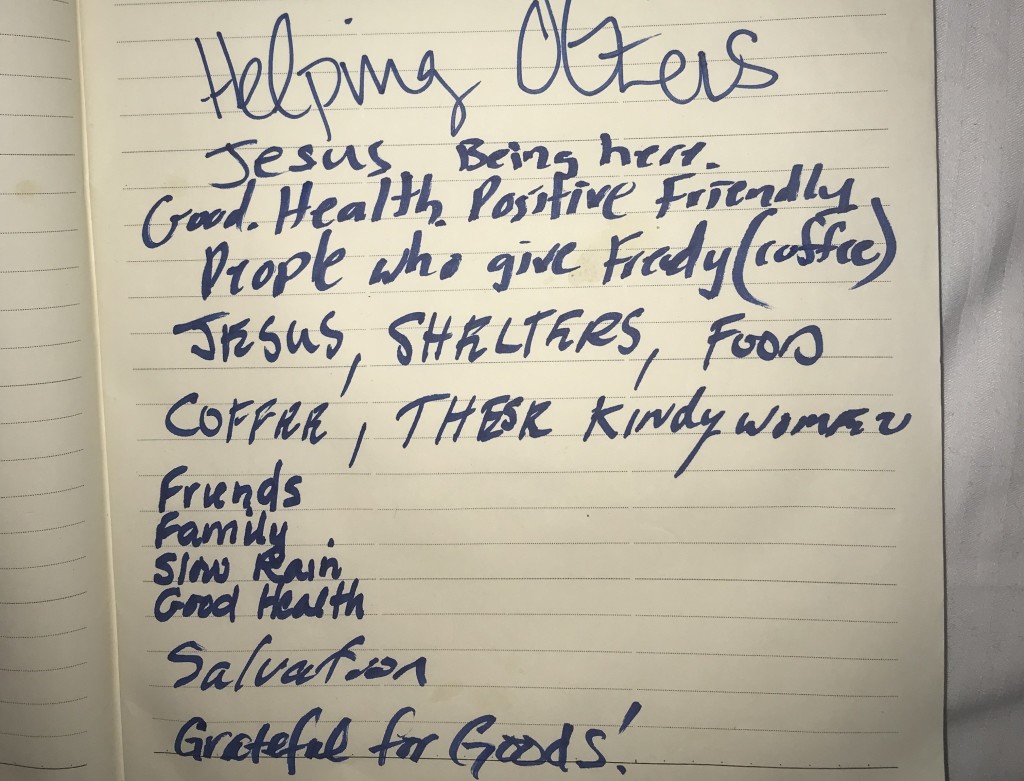 Helping Others
Jesus Being here.
Good. Health. Positive Friendly
People who give Fredy (coffee)
JESUS, SHELTERS, FOOD
COFFEE, THESE Kindy women
Friends
Family.
Slow Rain
Good Health
Salvation
Grateful for Goods!